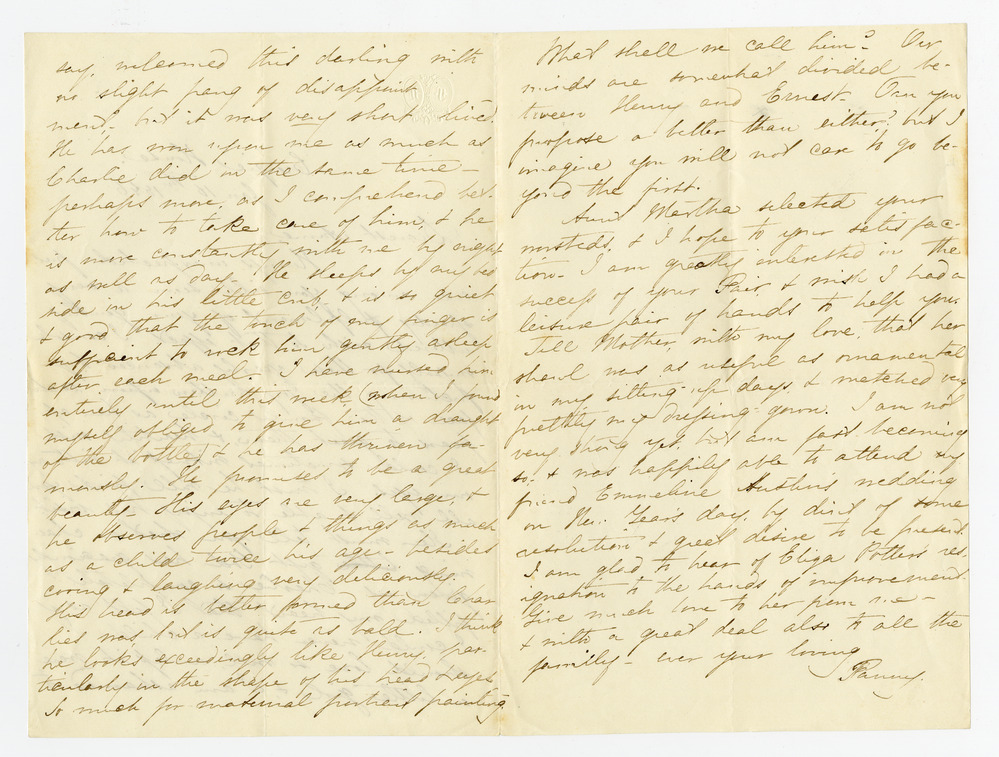 say, welcomed this darling with
no slight pang of disappoint
ment, but it was very short lived.
He has won upon me as much as
Charlie did in the same time –
perhaps more, as I comprehend bet-
ter how to take care of him, & he
is more constantly with me by night
as well as day. He sleeps by my bed
side in his little crib, & is so quiet
& good that the touch of my finger is
sufficient to rock him gently asleep
after each meal. I have nursed him
entirely until this week, (when I found
myself obliged to give him a draught
of the bottle) & he has thriven fa-
mously. He promises to be a great
beauty. His eyes are very large, &
he observes people & things as much
as a child twice his age – besides
cooing & laughing very deliciously.
His head is better formed than Char
lies was but is quite as bald. I think
he looks exceedingly like Henry, par-
ticularly in the shape of his head & eyes
So much for maternal portrait painting
What shall we call him? Our
minds are somewhat divided be-
tween Henry and Ernest. Can you
propose a better than either? but I
imagine you will not care to go be-
yond the first.
Aunt Martha selected your
worsteds, & I hope to your satisfac-
tion. I am greatly interested in the
success of your Fair, & wish I had a
leisure pair of hands to help you.
Tell Mother, with my love, that her
shawl was as useful as ornamental
in my sitting-up days, & matched very
prettily my dressing-gown. I am not
very strong yet, but am fast becoming
so, & was happily able to attend my
friend Emmeline Austin's wedding
on New Year's day, by dint of some
resolution & great desire to be present.
I am glad to hear of Eliza Potter's res-
ignation to the hands of improvement.
Give much love to her from me –
& with a great deal also to all the
family – ever your loving
Fanny.